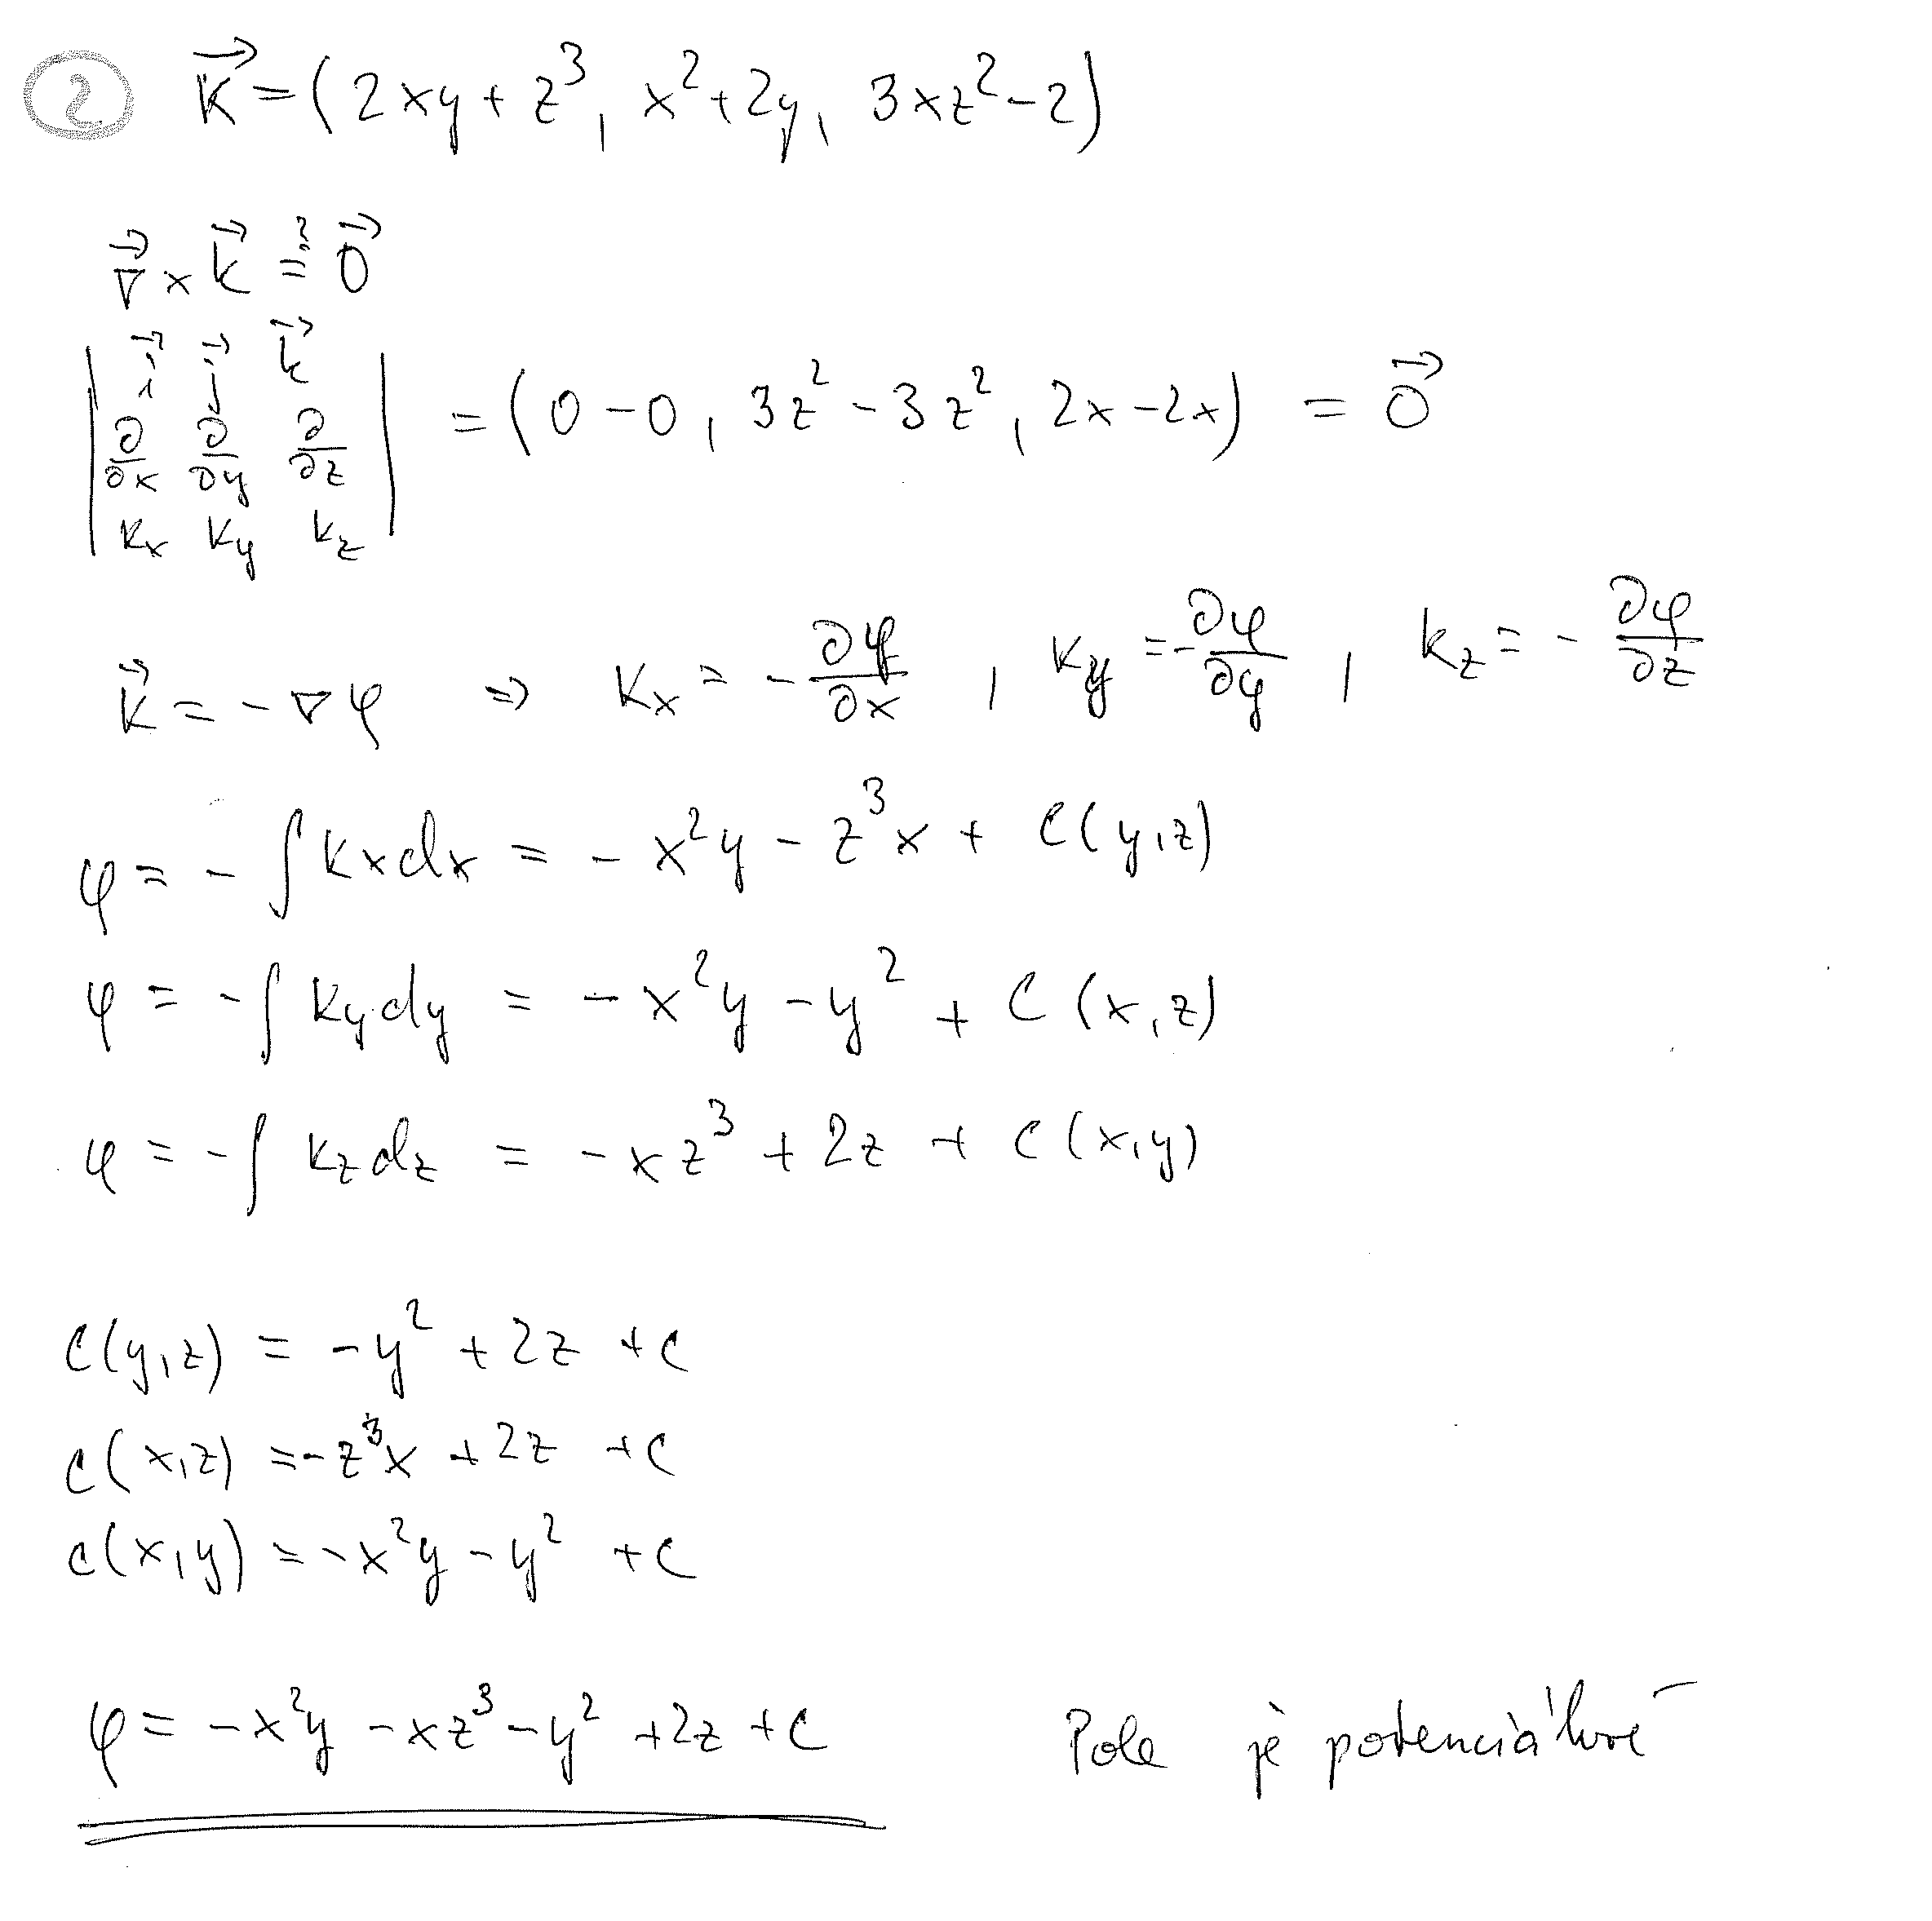 ② K⃗ = (2xy + z³, x² + 2y, 3xz² - 2)
∇⃗ × K⃗ ≟ 0⃗
| i⃗ j⃗ k⃗ |
| ∂/∂x ∂/∂y ∂/∂z | = (0 - 0, 3z² - 3z², 2x - 2x) = 0⃗
| Kx Ky Kz |
K⃗ = -∇φ ⇒ Kx = -∂φ/∂x, Ky = -∂φ/∂y, Kz = -∂φ/∂z
φ = -∫ Kx dx = -x²y - z³x + C(y,z)
φ = -∫ Ky dy = -x²y - y² + C(x,z)
φ = -∫ Kz dz = -xz³ + 2z + C(x,y)
C(y,z) = -y² + 2z + C
C(x,z) = -z³x + 2z + C
C(x,y) = -x²y - y² + C
φ = -x²y - xz³ - y² + 2z + C Pole je potenciálové